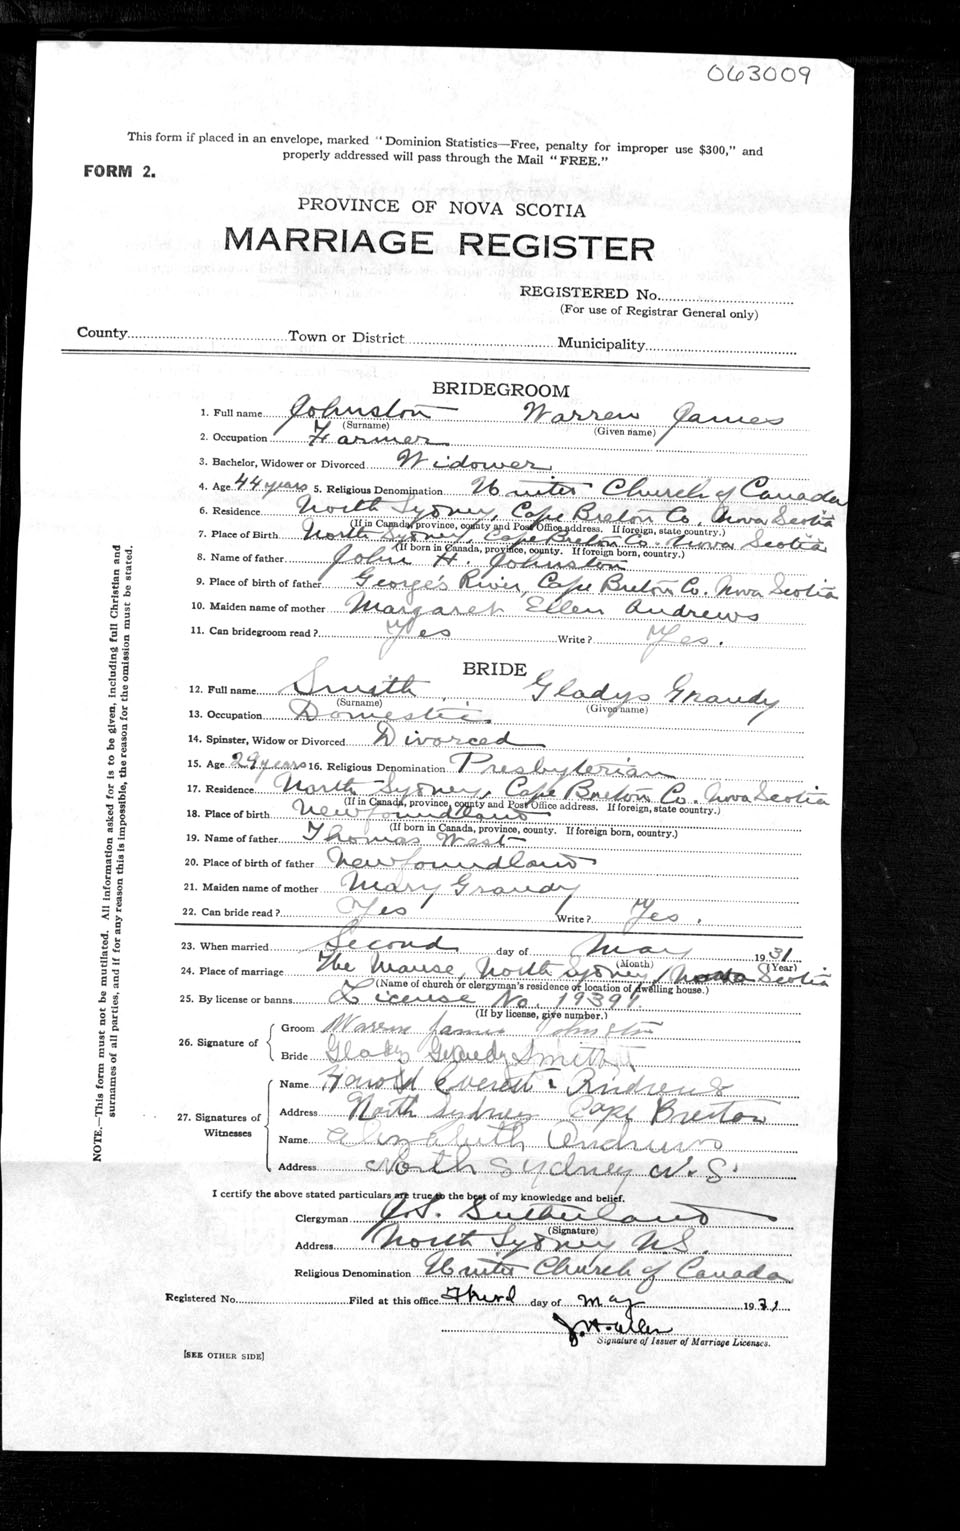 063009
This form if placed in an envelope, marked "Dominion Statistics—Free, penalty for improper use $300," and
properly addressed will pass through the Mail "FREE."
FORM 2.
PROVINCE OF NOVA SCOTIA
MARRIAGE REGISTER
REGISTERED No.
(For use of Registrar General only)
County Town or District Municipality
BRIDEGROOM
1. Full name Johnston Warren James
(Surname) (Given name)
2. Occupation Farmer
3. Bachelor, Widower or Divorced Widower
4. Age 44 years 5. Religious Denomination United Church of Canada
6. Residence North Sydney, Cape Breton Co. Nova Scotia
(If in Canada, province, county and Post Office address. If foreign, state country.)
7. Place of Birth North Sydney, Cape Breton Co. Nova Scotia
(If born in Canada, province, county. If foreign born, country.)
8. Name of father John H. Johnston
9. Place of birth of father George's River, Cape Breton Co. Nova Scotia
10. Maiden name of mother Margaret Ellen Andrews
11. Can bridegroom read? Yes Write? Yes.
BRIDE
12. Full name Smith Gladys Grandy
(Surname) (Given name)
13. Occupation Domestic
14. Spinster, Widow or Divorced Divorced
15. Age 29 years 16. Religious Denomination Presbyterian
17. Residence North Sydney, Cape Breton Co. Nova Scotia
(If in Canada, province, county and Post Office address. If foreign, state country.)
18. Place of birth Newfoundland
(If born in Canada, province, county. If foreign born, country.)
19. Name of father Thomas West
20. Place of birth of father Newfoundland
21. Maiden name of mother Mary Grandy
22. Can bride read? Yes Write? Yes.
23. When married Second day of May 1931
(Month) (Year)
24. Place of marriage The Manse, North Sydney, Nova Scotia
(Name of church or clergyman's residence or location of dwelling house.)
25. By license or banns License No.
(If by license, give number.)
26. Signature of
Groom Warren James Johnston
Bride Gladys Grandy Smith
27. Signatures of
Witnesses
Name Harold Everett Andrews
Address North Sydney Cape Breton
Name Elizabeth Andrews
Address North Sydney N.S.
I certify the above stated particulars are true to the best of my knowledge and belief.
Clergyman Sutherland
(Signature)
Address North Sydney N.S.
Religious Denomination United Church of Canada
Registered No. Filed at this office Third day of May 1931
Signature of Issuer of Marriage Licenses.
[SEE OTHER SIDE]
NOTE.—This form must not be mutilated. All information asked for is to be given, including full Christian and
surnames of all parties, and if for any reason this is impossible, the reason for the omission must be stated.